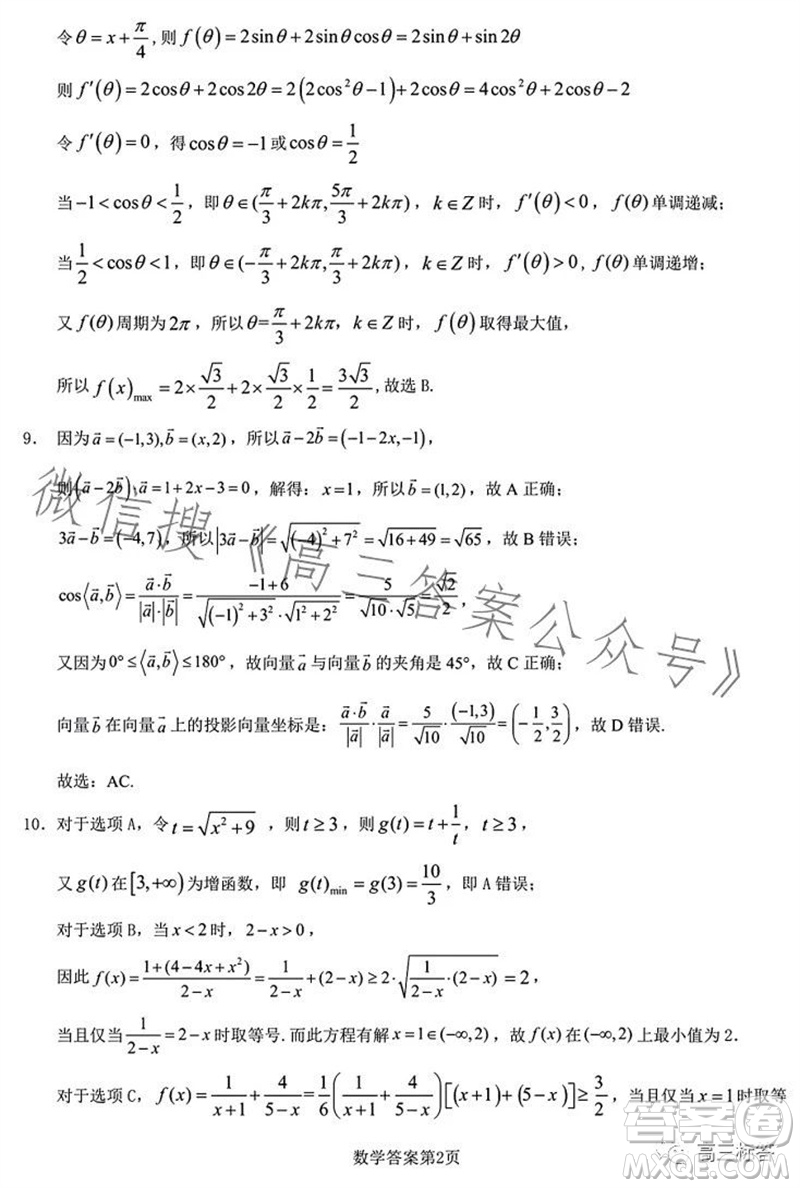 令θ = x + π/4, 则 f(θ) = 2sinθ + 2sinθcosθ = 2sinθ + sin2θ
则 f′(θ) = 2cosθ + 2cos2θ = 2(2cos²θ−1) + 2cosθ = 4cos²θ + 2cosθ − 2
令 f′(θ) = 0，得 cosθ = −1 或 cosθ = 1/2
当 −1 < cosθ < 1/2，即 θ∈(π/3 + 2kπ, 5π/3 + 2kπ)，k∈Z 时，f′(θ) < 0，f(θ) 单调递减；
当 1/2 < cosθ < 1，即 θ∈(−π/3 + 2kπ, π/3 + 2kπ)，k∈Z 时，f′(θ) > 0, f(θ) 单调递增；
又 f(θ) 周期为 2π，所以 θ=π/3 + 2kπ，k∈Z 时，f(θ) 取得最大值，
所以 f(x)max = 2×√3/2 + 2×√3/2×1/2 = 3√3/2, 故选 B.
9. 因为 a⃗ = (−1,3), b⃗ = (x,2)，所以 a⃗ − 2b⃗ = (−1−2x, −1)，
则(a⃗ − 2b⃗)·a⃗ = 1 + 2x − 3 = 0，解得：x = 1，所以 b⃗ = (1,2)，故 A 正确；
3a⃗ − b⃗ = (−4,7)，所以 |3a⃗ − b⃗| = √((−4)² + 7²) = √(16+49) = √65，故 B 错误；
cos⟨a⃗,b⃗⟩ = a⃗·b⃗/(|a⃗|·|b⃗|) = (−1+6)/(√((−1)²+3²)·√(1²+2²)) = 5/(√10·√5) = √2/2，
又因为 0° ≤ ⟨a⃗,b⃗⟩ ≤ 180°，故向量 a⃗ 与向量 b⃗ 的夹角是 45°，故 C 正确；
向量 b⃗ 在向量 a⃗ 上的投影向量坐标是：a⃗·b⃗/|a⃗| · a⃗/|a⃗| = 5/√10 · (−1,3)/√10 = (−1/2, 3/2)，故 D 错误.
故选：AC.
10. 对于选项 A，令 t = √(x²+9) ，则 t ≥ 3，则 g(t) = t + 1/t，t ≥ 3，
又 g(t) 在 [3,+∞) 为增函数，即 g(t)min = g(3) = 10/3，即 A 错误；
对于选项 B，当 x < 2 时，2 − x > 0，
因此 f(x) = (1+(4−4x+x²))/(2−x) = 1/(2−x) + (2−x) ≥ 2·√(1/(2−x)·(2−x)) = 2，
当且仅当 1/(2−x) = 2−x 时取等号. 而此方程有解 x = 1∈(−∞,2)，故 f(x) 在 (−∞,2) 上最小值为 2.
对于选项 C，f(x) = 1/(x+1) + 4/(5−x) = 1/6(1/(x+1) + 4/(5−x))[(x+1)+(5−x)] ≥ 3/2，当且仅当 x = 1 时取等
数学答案第2页
微信搜《高三答案公众号》
高三标答
答案圈
MXQE.COM